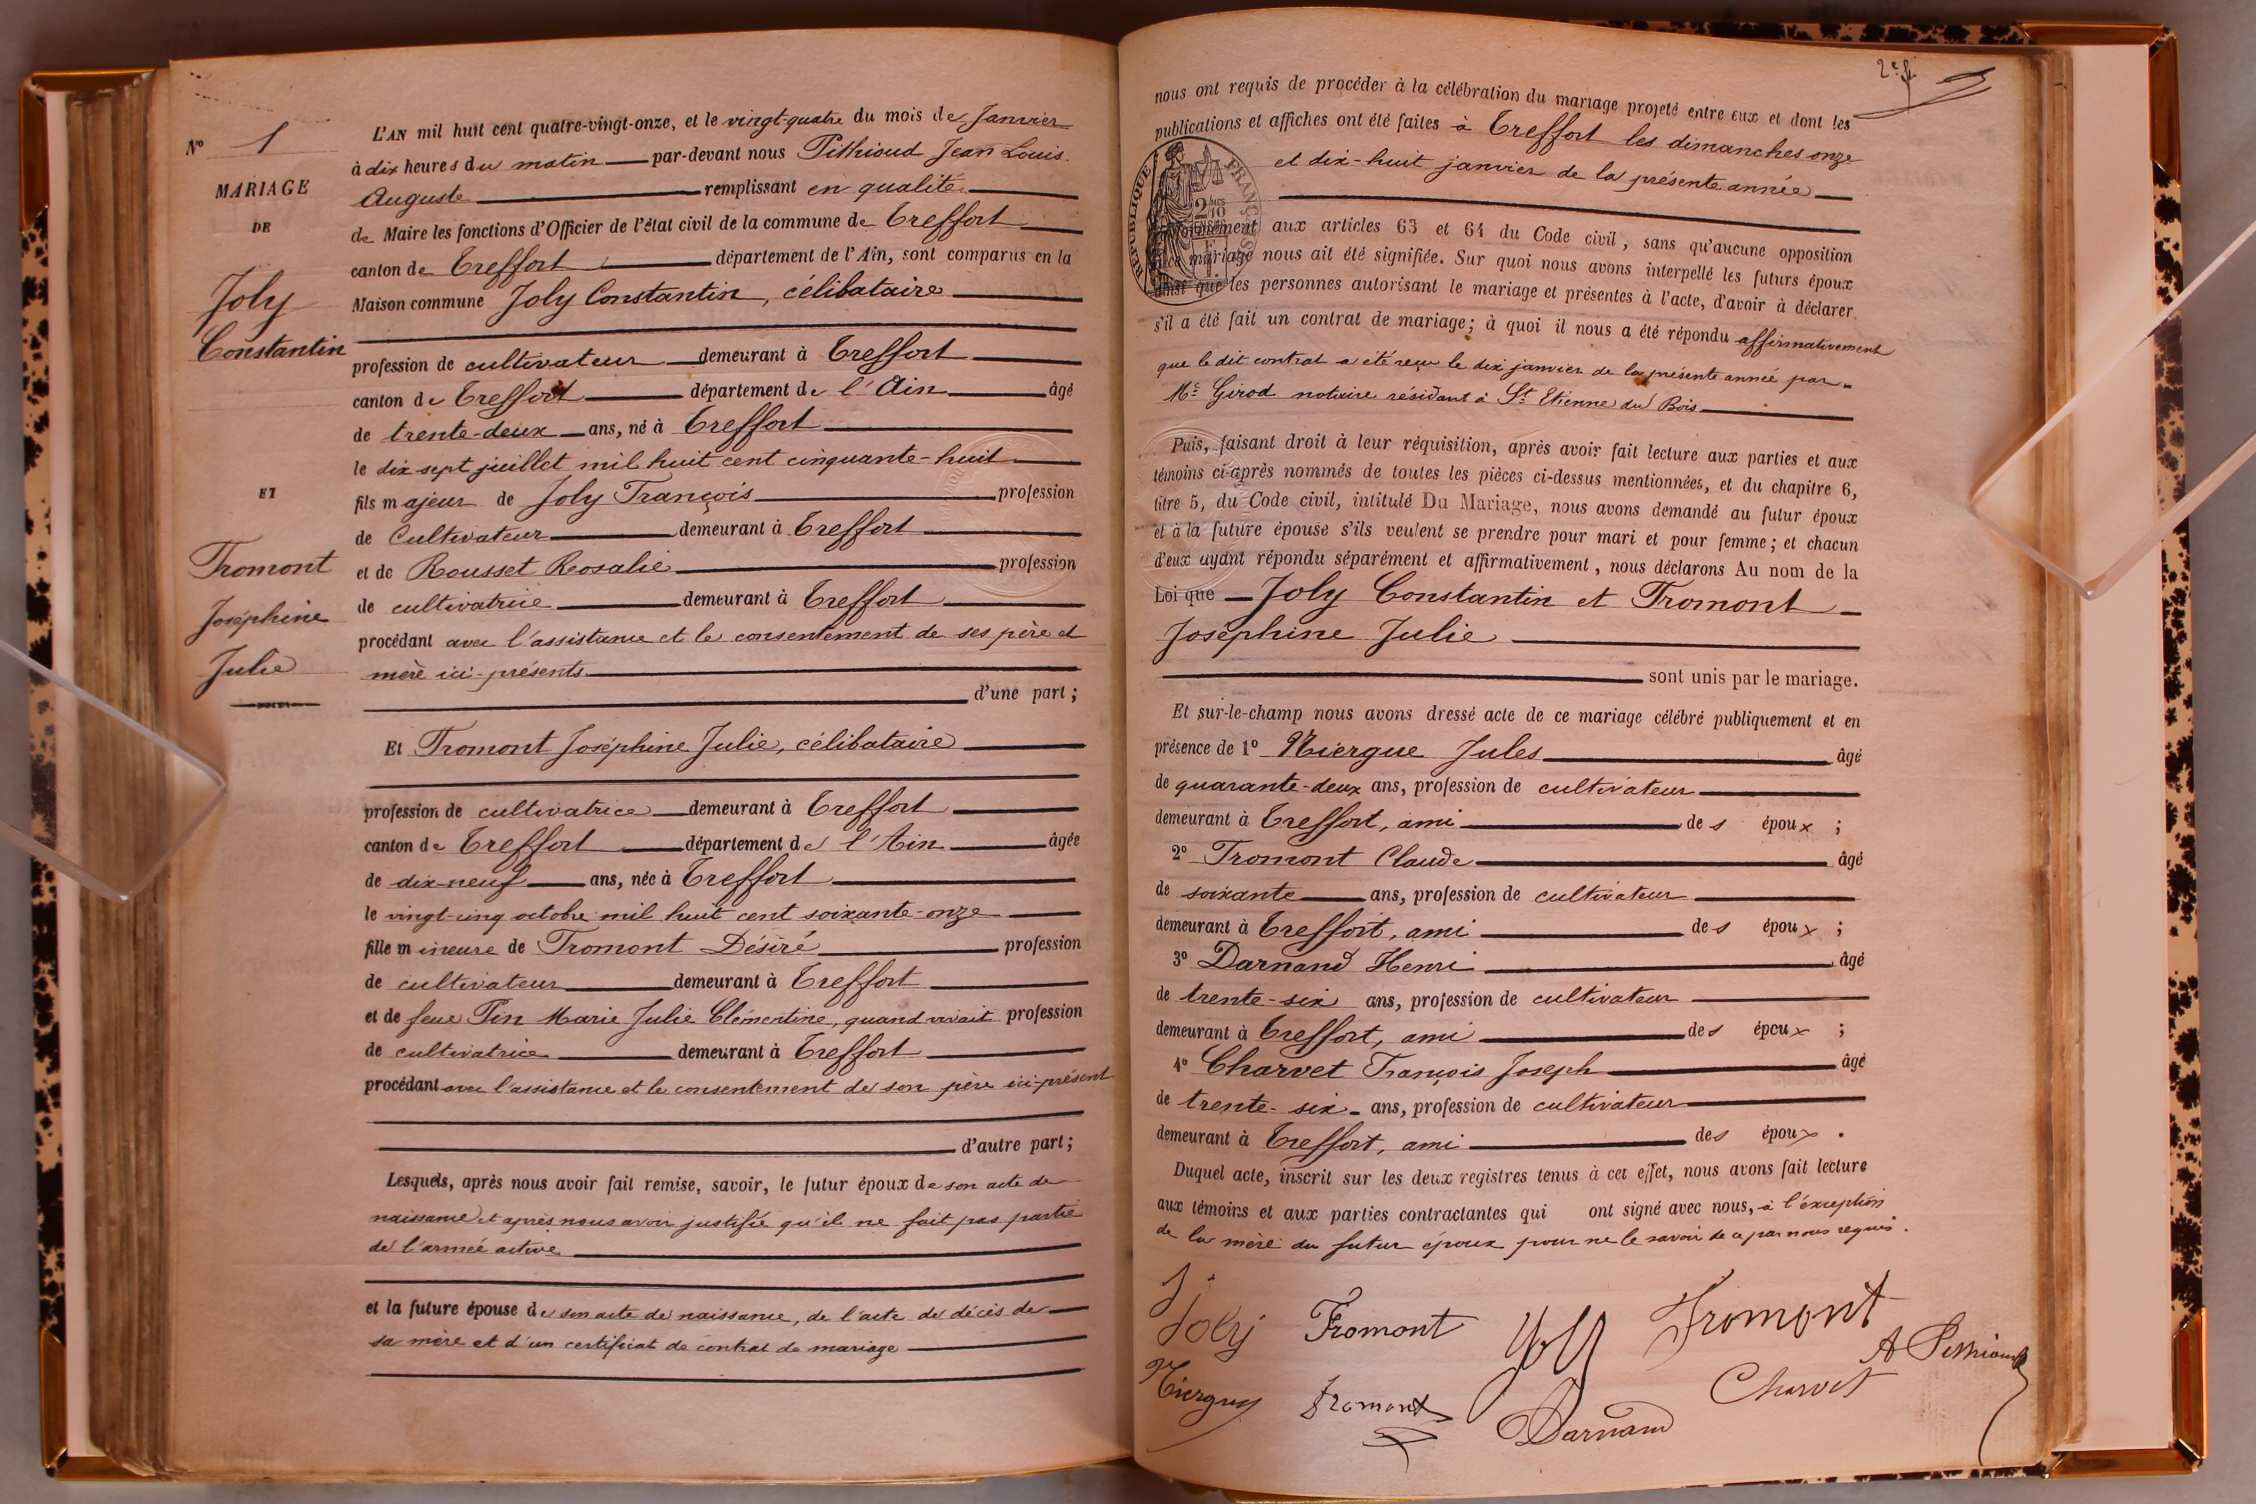 N° 1
MARIAGE
DE
Joly
Constantin
ET
Fromont
Joséphine
Julie
L'AN mil huit cent quatre-vingt-onze, et le vingt-quatre du mois de Janvier
à dix heures du matin par-devant nous Pithioud Jean Louis
Auguste remplissant en qualité
de Maire les fonctions d'Officier de l'état civil de la commune de Treffort
canton de Treffort département de l'Ain, sont comparus en la
Maison commune Joly Constantin, célibataire
profession de cultivateur demeurant à Treffort
canton de Treffort département de l'Ain âgé
de trente-deux ans, né à Treffort
le dix sept juillet mil huit cent cinquante-huit
fils majeur de Joly François profession
de Cultivateur demeurant à Treffort
et de Rousset Rosalie profession
de cultivatrice demeurant à Treffort
procédant avec l'assistance et le consentement de ses père et
mère ici-présents
d'une part ;
Et Fromont Joséphine Julie, célibataire
profession de cultivatrice demeurant à Treffort
canton de Treffort département de l'Ain âgée
de dix-neuf ans, née à Treffort
le vingt-cinq octobre mil huit cent soixante-onze
fille mineure de Fromont Désiré profession
de cultivateur demeurant à Treffort
et de feue Pin Marie Julie Clémentine, quand vivait profession
de cultivatrice demeurant à Treffort
procédant avec l'assistance et le consentement de son père ici-présent
d'autre part ;
Lesquels, après nous avoir fait remise, savoir, le futur époux de son acte de
naissance et après nous avoir justifié qu'il ne fait pas partie
de l'armée active
et la future épouse de son acte de naissance, de l'acte de décès de
sa mère et d'un certificat de contrat de mariage
2e f
nous ont requis de procéder à la célébration du mariage projeté entre eux et dont les
publications et affiches ont été faites à Treffort les dimanches onze
et dix-huit janvier de la présente année
RÉPUBLIQUE FRANÇAISE
2/10
EN SUS
1 F.
conformément aux articles 63 et 64 du Code civil, sans qu'aucune opposition
à ce mariage nous ait été signifiée. Sur quoi nous avons interpellé les futurs époux
ainsi que les personnes autorisant le mariage et présentes à l'acte, d'avoir à déclarer
s'il a été fait un contrat de mariage ; à quoi il nous a été répondu affirmativement
que le dit contrat a été reçu le dix janvier de la présente année par
Me Girod notaire résidant à St Etienne du Bois
Puis, faisant droit à leur réquisition, après avoir fait lecture aux parties et aux
témoins ci-après nommés de toutes les pièces ci-dessus mentionnées, et du chapitre 6,
titre 5, du Code civil, intitulé Du Mariage, nous avons demandé au futur époux
et à la future épouse s'ils veulent se prendre pour mari et pour femme ; et chacun
d'eux ayant répondu séparément et affirmativement, nous déclarons Au nom de la
Loi que Joly Constantin et Fromont
Joséphine Julie
sont unis par le mariage.
Et sur-le-champ nous avons dressé acte de ce mariage célébré publiquement et en
présence de 1° Niergue Jules âgé
de quarante-deux ans, profession de cultivateur
demeurant à Treffort, ami des époux ;
2° Fromont Claude âgé
de soixante ans, profession de cultivateur
demeurant à Treffort, ami des époux ;
3° Darnand Henri âgé
de trente-six ans, profession de cultivateur
demeurant à Treffort, ami des époux ;
4° Charvet François Joseph âgé
de trente-six ans, profession de cultivateur
demeurant à Treffort, ami des époux .
Duquel acte, inscrit sur les deux registres tenus à cet effet, nous avons fait lecture
aux témoins et aux parties contractantes qui ont signé avec nous, à l'éxception
de la mère du futur époux pour ne le savoir de ce par nous requis.
J Joly Fromont Joly Fromont
A Pithioud
Niergue Fromont Darnand Charvet